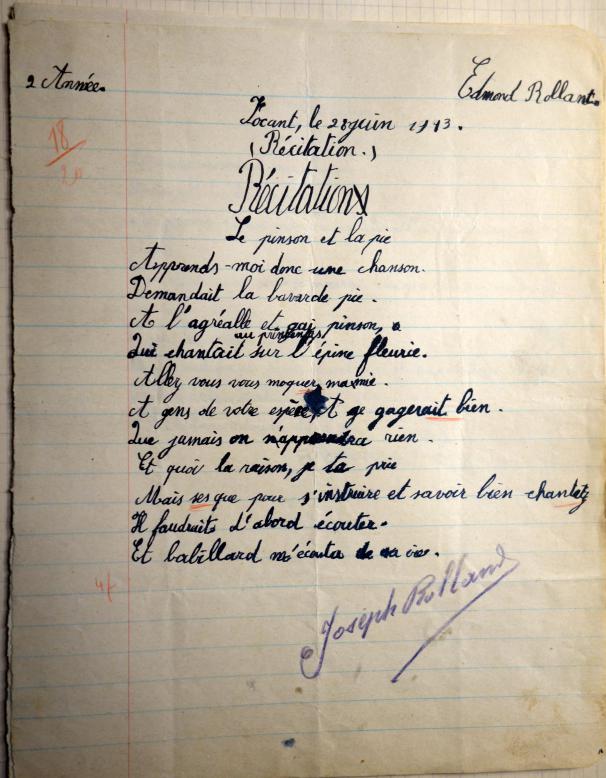 2 Année.
Edmond Rollant.
Locant, le 28 juin 1943.
18/20
(Récitation.)
Récitations
Le pinson et la pie
Apprends-moi donc une chanson.
Demandait la bavarde pie.
A l'agréalle et gai pinson,
au printemps
Qui chantait sur l'épine fleurie.
Allez vous vous moquer mamie.
A gens de votre espèce A ge gagerait bien.
Que jamais on n'apprendra rien.
Et quoi la raison, je ta prie
Mais ses que pour s'instruire et savoir bien chantetz
Il faudraits d'abord écouter.
Et babillard n'écouta de sa vie.
4f
Joseph Rolland